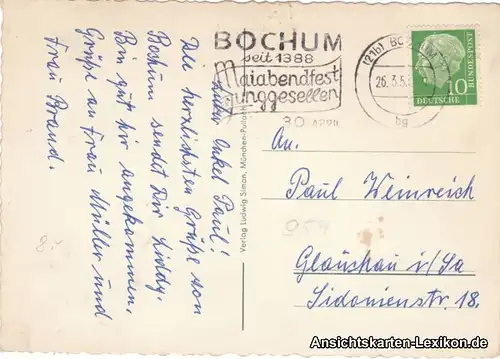 Lieber Onkel Paul!
Die herzlichsten Grüße von
Bochum sendet Dir
Bin gut hir angekommen.
Grüße an Frau Müller und
Frau Brand.
8.-
Verlag Ludwig Simon, München-Pullach
BOCHUM
seit 1388
Maiabendfest
Junggesellen
30. APRIL
(21b) BOCHUM
26.3.5
bg
10
DEUTSCHE
BUNDESPOST
An.
Paul Weinreich
959
Glauchau i/Sa
Sidonienstr. 18.
Ansichtskarten-Lexikon.de